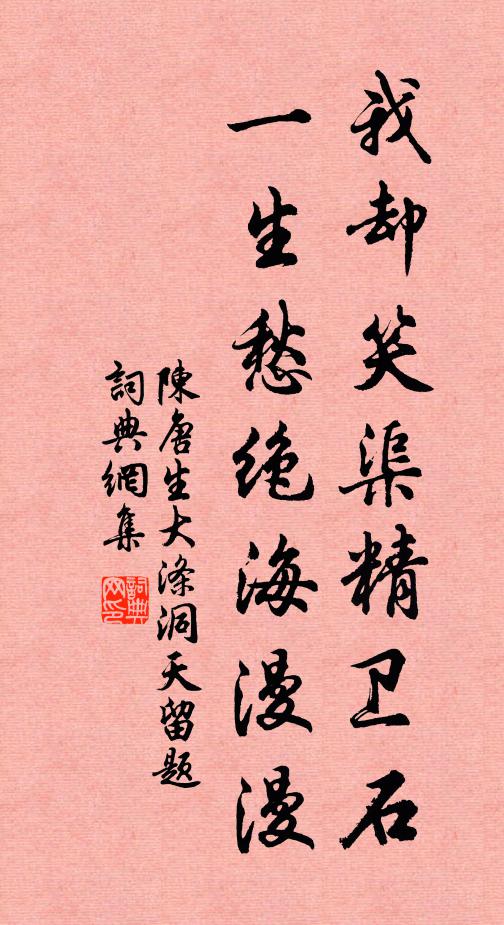 我却笑渠精卫石
一生愁绝海漫漫
陳唐生大涤洞天留题
詞典網集
詞典网印